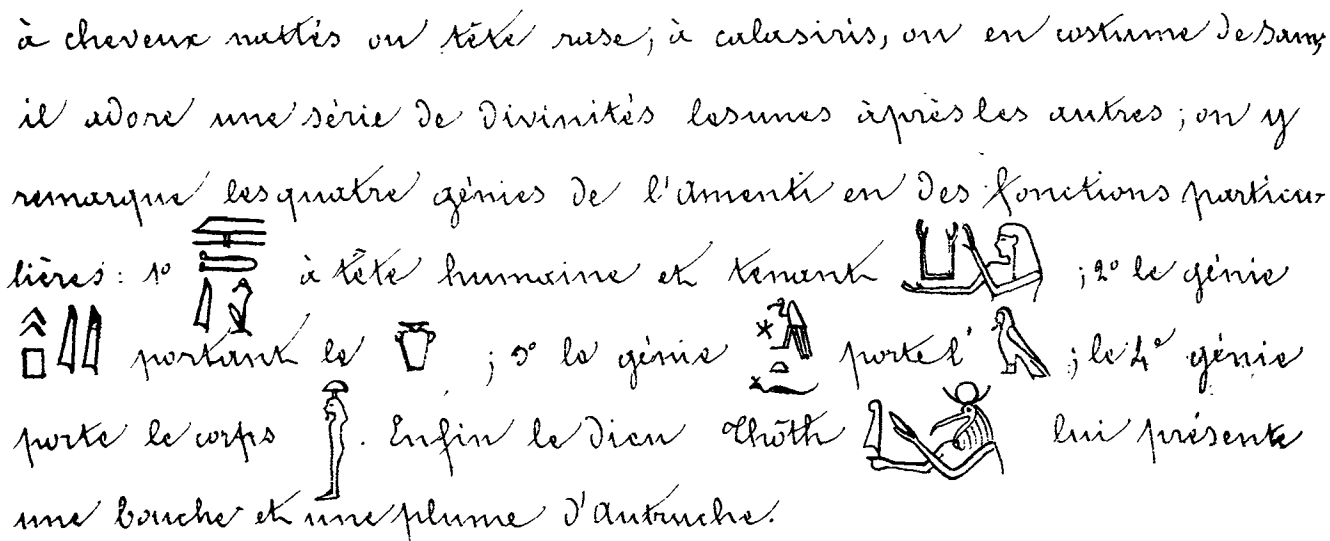 à cheveux nattés ou tête rase; à calasiris, ou en costume de sam,
il adore une série de divinités les unes après les autres; on y
remarque les quatre génies de l'Amenti en des fonctions particu-
lières: 1º à tête humaine et tenant ; 2º le génie
portant le ; 3º le génie porte l' ; le 4º génie
porte le corps . Enfin le Dieu Thôth lui présente
une bouche et une plume d'Autruche.